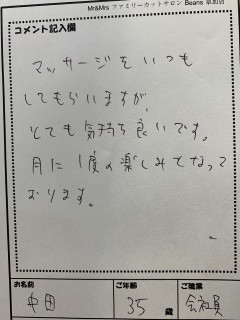 Mr&Mrs ファミリーカットサロン Beans 草加店
コメント記入欄
マッサージをいつも
してもらいますが、
とても気持ち良いです。
月に1度の楽しみとなって
おります。
お名前
ご年齢
ご職業
中田
35 歳
会社員